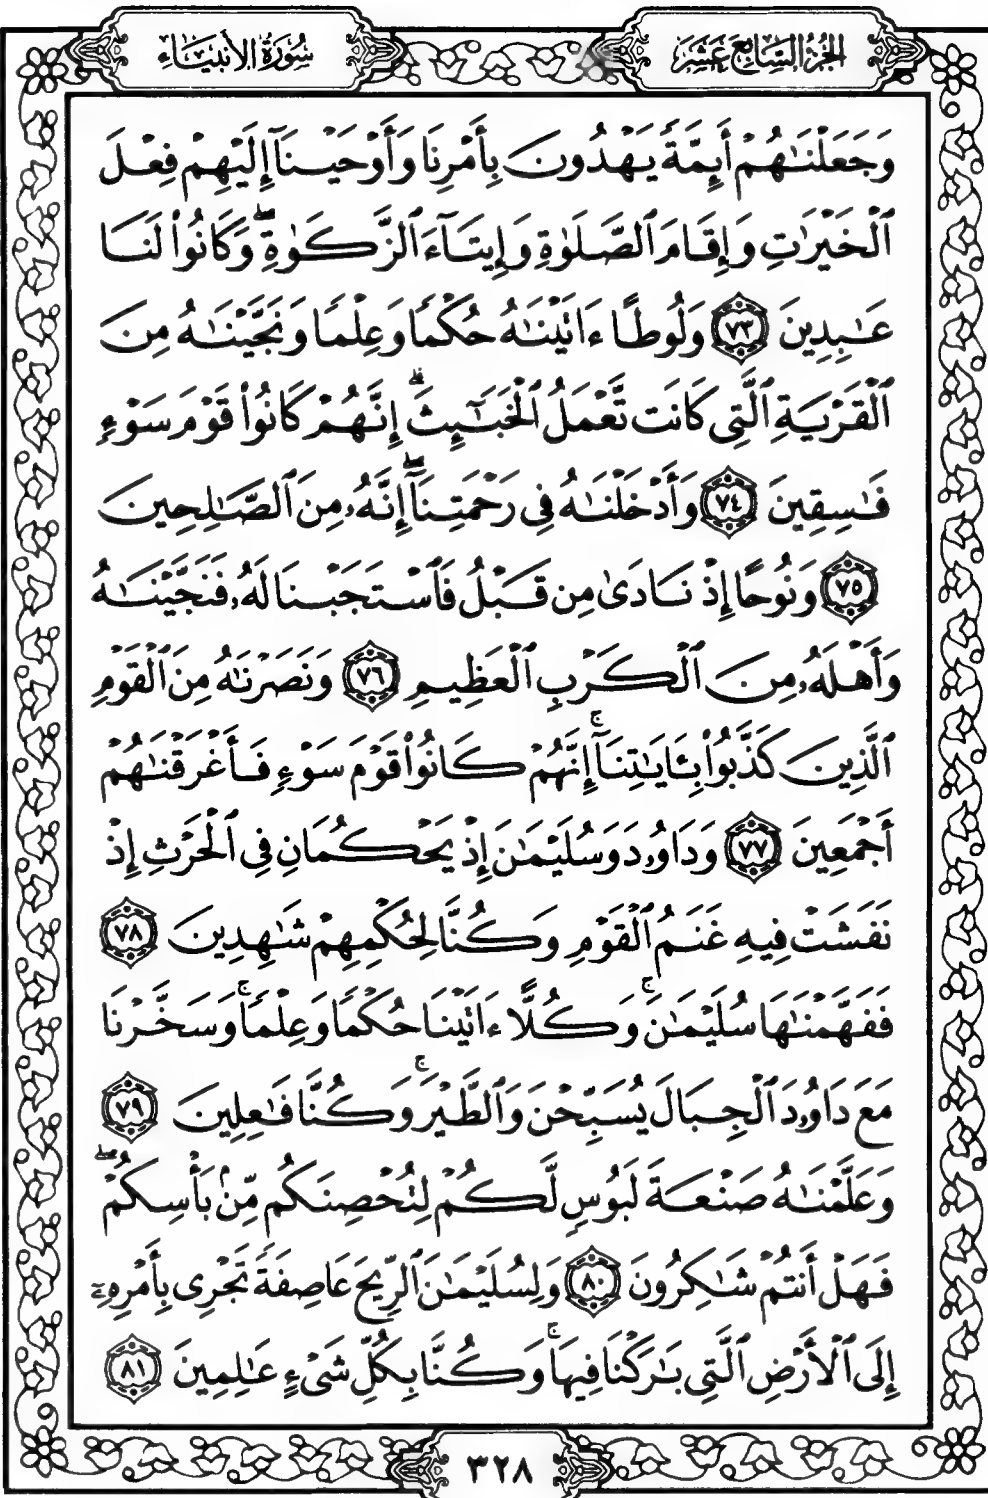 الجُزْءُ السَّابِعَ عَشَرَ
سُورَةُ الأَنْبِيَاءِ
وَجَعَلْنَٰهُمْ أَئِمَّةً يَهْدُونَ بِأَمْرِنَا وَأَوْحَيْنَآ إِلَيْهِمْ فِعْلَ
ٱلْخَيْرَٰتِ وَإِقَامَ ٱلصَّلَوٰةِ وَإِيتَآءَ ٱلزَّكَوٰةِۖ وَكَانُوا۟ لَنَا
عَٰبِدِينَ ٧٣ وَلُوطًا ءَاتَيْنَٰهُ حُكْمًا وَعِلْمًا وَنَجَّيْنَٰهُ مِنَ
ٱلْقَرْيَةِ ٱلَّتِى كَانَت تَّعْمَلُ ٱلْخَبَٰٓئِثَۗ إِنَّهُمْ كَانُوا۟ قَوْمَ سَوْءٍ
فَٰسِقِينَ ٧٤ وَأَدْخَلْنَٰهُ فِى رَحْمَتِنَآۖ إِنَّهُۥ مِنَ ٱلصَّٰلِحِينَ
٧٥ وَنُوحًا إِذْ نَادَىٰ مِن قَبْلُ فَٱسْتَجَبْنَا لَهُۥ فَنَجَّيْنَٰهُ
وَأَهْلَهُۥ مِنَ ٱلْكَرْبِ ٱلْعَظِيمِ ٧٦ وَنَصَرْنَٰهُ مِنَ ٱلْقَوْمِ
ٱلَّذِينَ كَذَّبُوا۟ بِـَٔايَٰتِنَآۚ إِنَّهُمْ كَانُوا۟ قَوْمَ سَوْءٍ فَأَغْرَقْنَٰهُمْ
أَجْمَعِينَ ٧٧ وَدَاوُۥدَ وَسُلَيْمَٰنَ إِذْ يَحْكُمَانِ فِى ٱلْحَرْثِ إِذْ
نَفَشَتْ فِيهِ غَنَمُ ٱلْقَوْمِ وَكُنَّا لِحُكْمِهِمْ شَٰهِدِينَ ٧٨
فَفَهَّمْنَٰهَا سُلَيْمَٰنَۚ وَكُلًّا ءَاتَيْنَا حُكْمًا وَعِلْمًاۚ وَسَخَّرْنَا
مَعَ دَاوُۥدَ ٱلْجِبَالَ يُسَبِّحْنَ وَٱلطَّيْرَۚ وَكُنَّا فَٰعِلِينَ ٧٩
وَعَلَّمْنَٰهُ صَنْعَةَ لَبُوسٍ لَّكُمْ لِتُحْصِنَكُم مِّنۢ بَأْسِكُمْۖ
فَهَلْ أَنتُمْ شَٰكِرُونَ ٨٠ وَلِسُلَيْمَٰنَ ٱلرِّيحَ عَاصِفَةً تَجْرِى بِأَمْرِهِۦٓ
إِلَى ٱلْأَرْضِ ٱلَّتِى بَٰرَكْنَا فِيهَاۚ وَكُنَّا بِكُلِّ شَىْءٍ عَٰلِمِينَ ٨١
٣٢٨